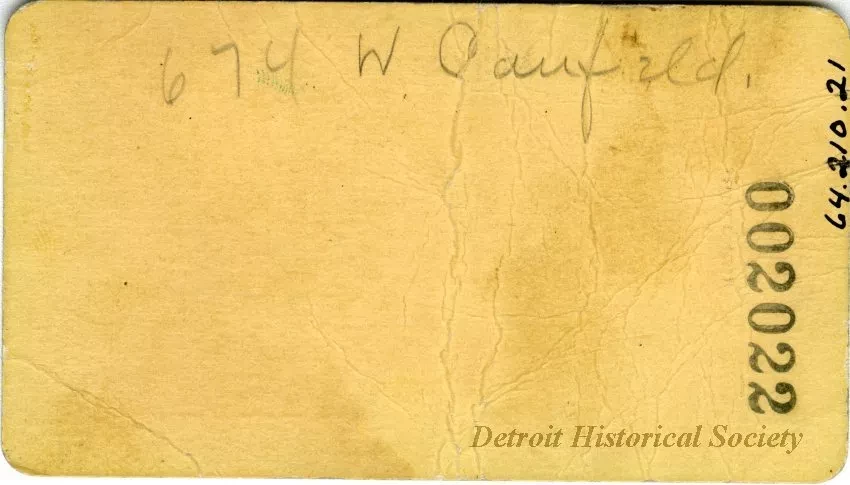 674 W Canfield.
64.210.21
002022
Detroit Historical Society